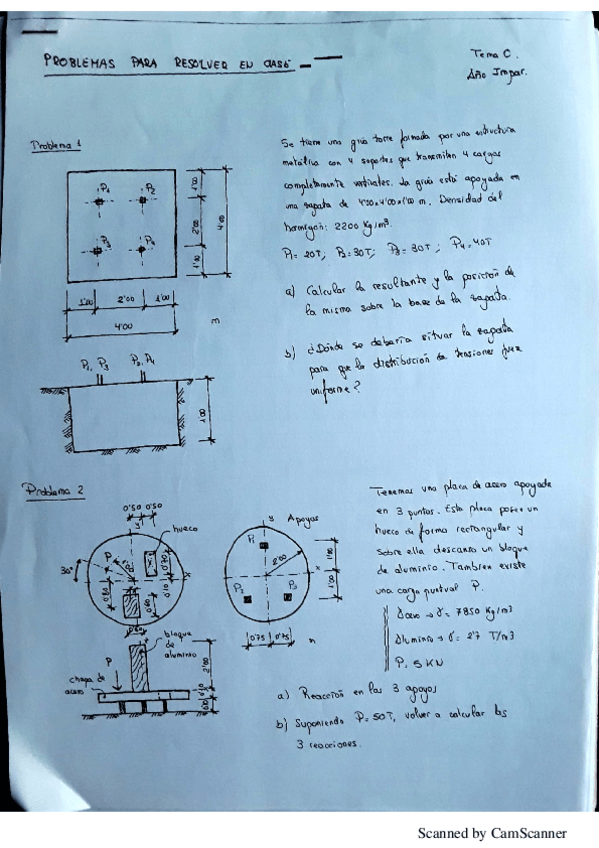 PROBLEMAS PARA RESOLVER EN CLASE
Tema C.
Año Impar.
Problema 1
P1 P2
P3 P4
1'00
2'00
1'00
4'00
1'00 2'00 1'00
4'00
m
P1, P3 P2, P4
1'00
Se tiene una grúa torre formada por una estructura
metálica con 4 soportes que transmiten 4 cargas
completamente verticales. La grúa está apoyada en
una zapata de 4'00x4'00x1'00 m. Densidad del
hormigón: 2200 Kg/m³.
P1= 20T; P2=30T; P3= 30T; P4=40T
a) Calcular la resultante y la posición de
la misma sobre la base de la zapata.
b) ¿Dónde se debería situar la zapata
para que la distribución de tensiones fuera
uniforme?
Problema 2
0'50 0'50
y
hueco
30°
P
x
0'70
0'60
bloque
de
aluminio
P
chapa de
acero
2'00
0'10
y
Apoyos
P1
2'00
P2 P3
x
1'00
1'00
0'75 0'75
m
Tenemos una placa de acero apoyada
en 3 puntos. Esta placa posee un
hueco de forma rectangular y
sobre ella descansa un bloque
de aluminio. También existe
una carga puntual P.
Acero → γ = 7850 Kg/m3
Aluminio → γ = 2'7 T/m3
P. 5 KN
a) Reacción en los 3 apoyos
b) Suponiendo P=50T, volver a calcular las
3 reacciones.
Scanned by CamScanner